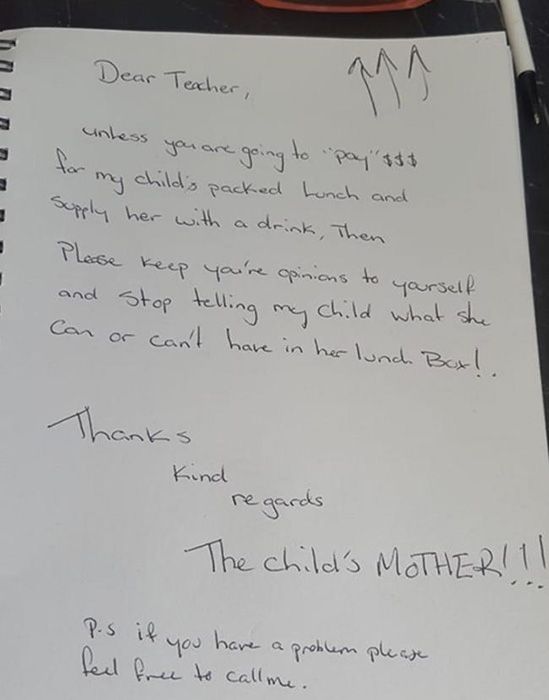 Dear Teacher,
unless you are going to "pay" $$$
for my child's packed Lunch and
Supply her with a drink, Then
Please keep you're opinions to yourself
and stop telling my child what she
Can or can't have in her lunch Box!.
Thanks
Kind
regards
The child's MOTHER!!!
P.S if you have a problem please
feel free to call me.